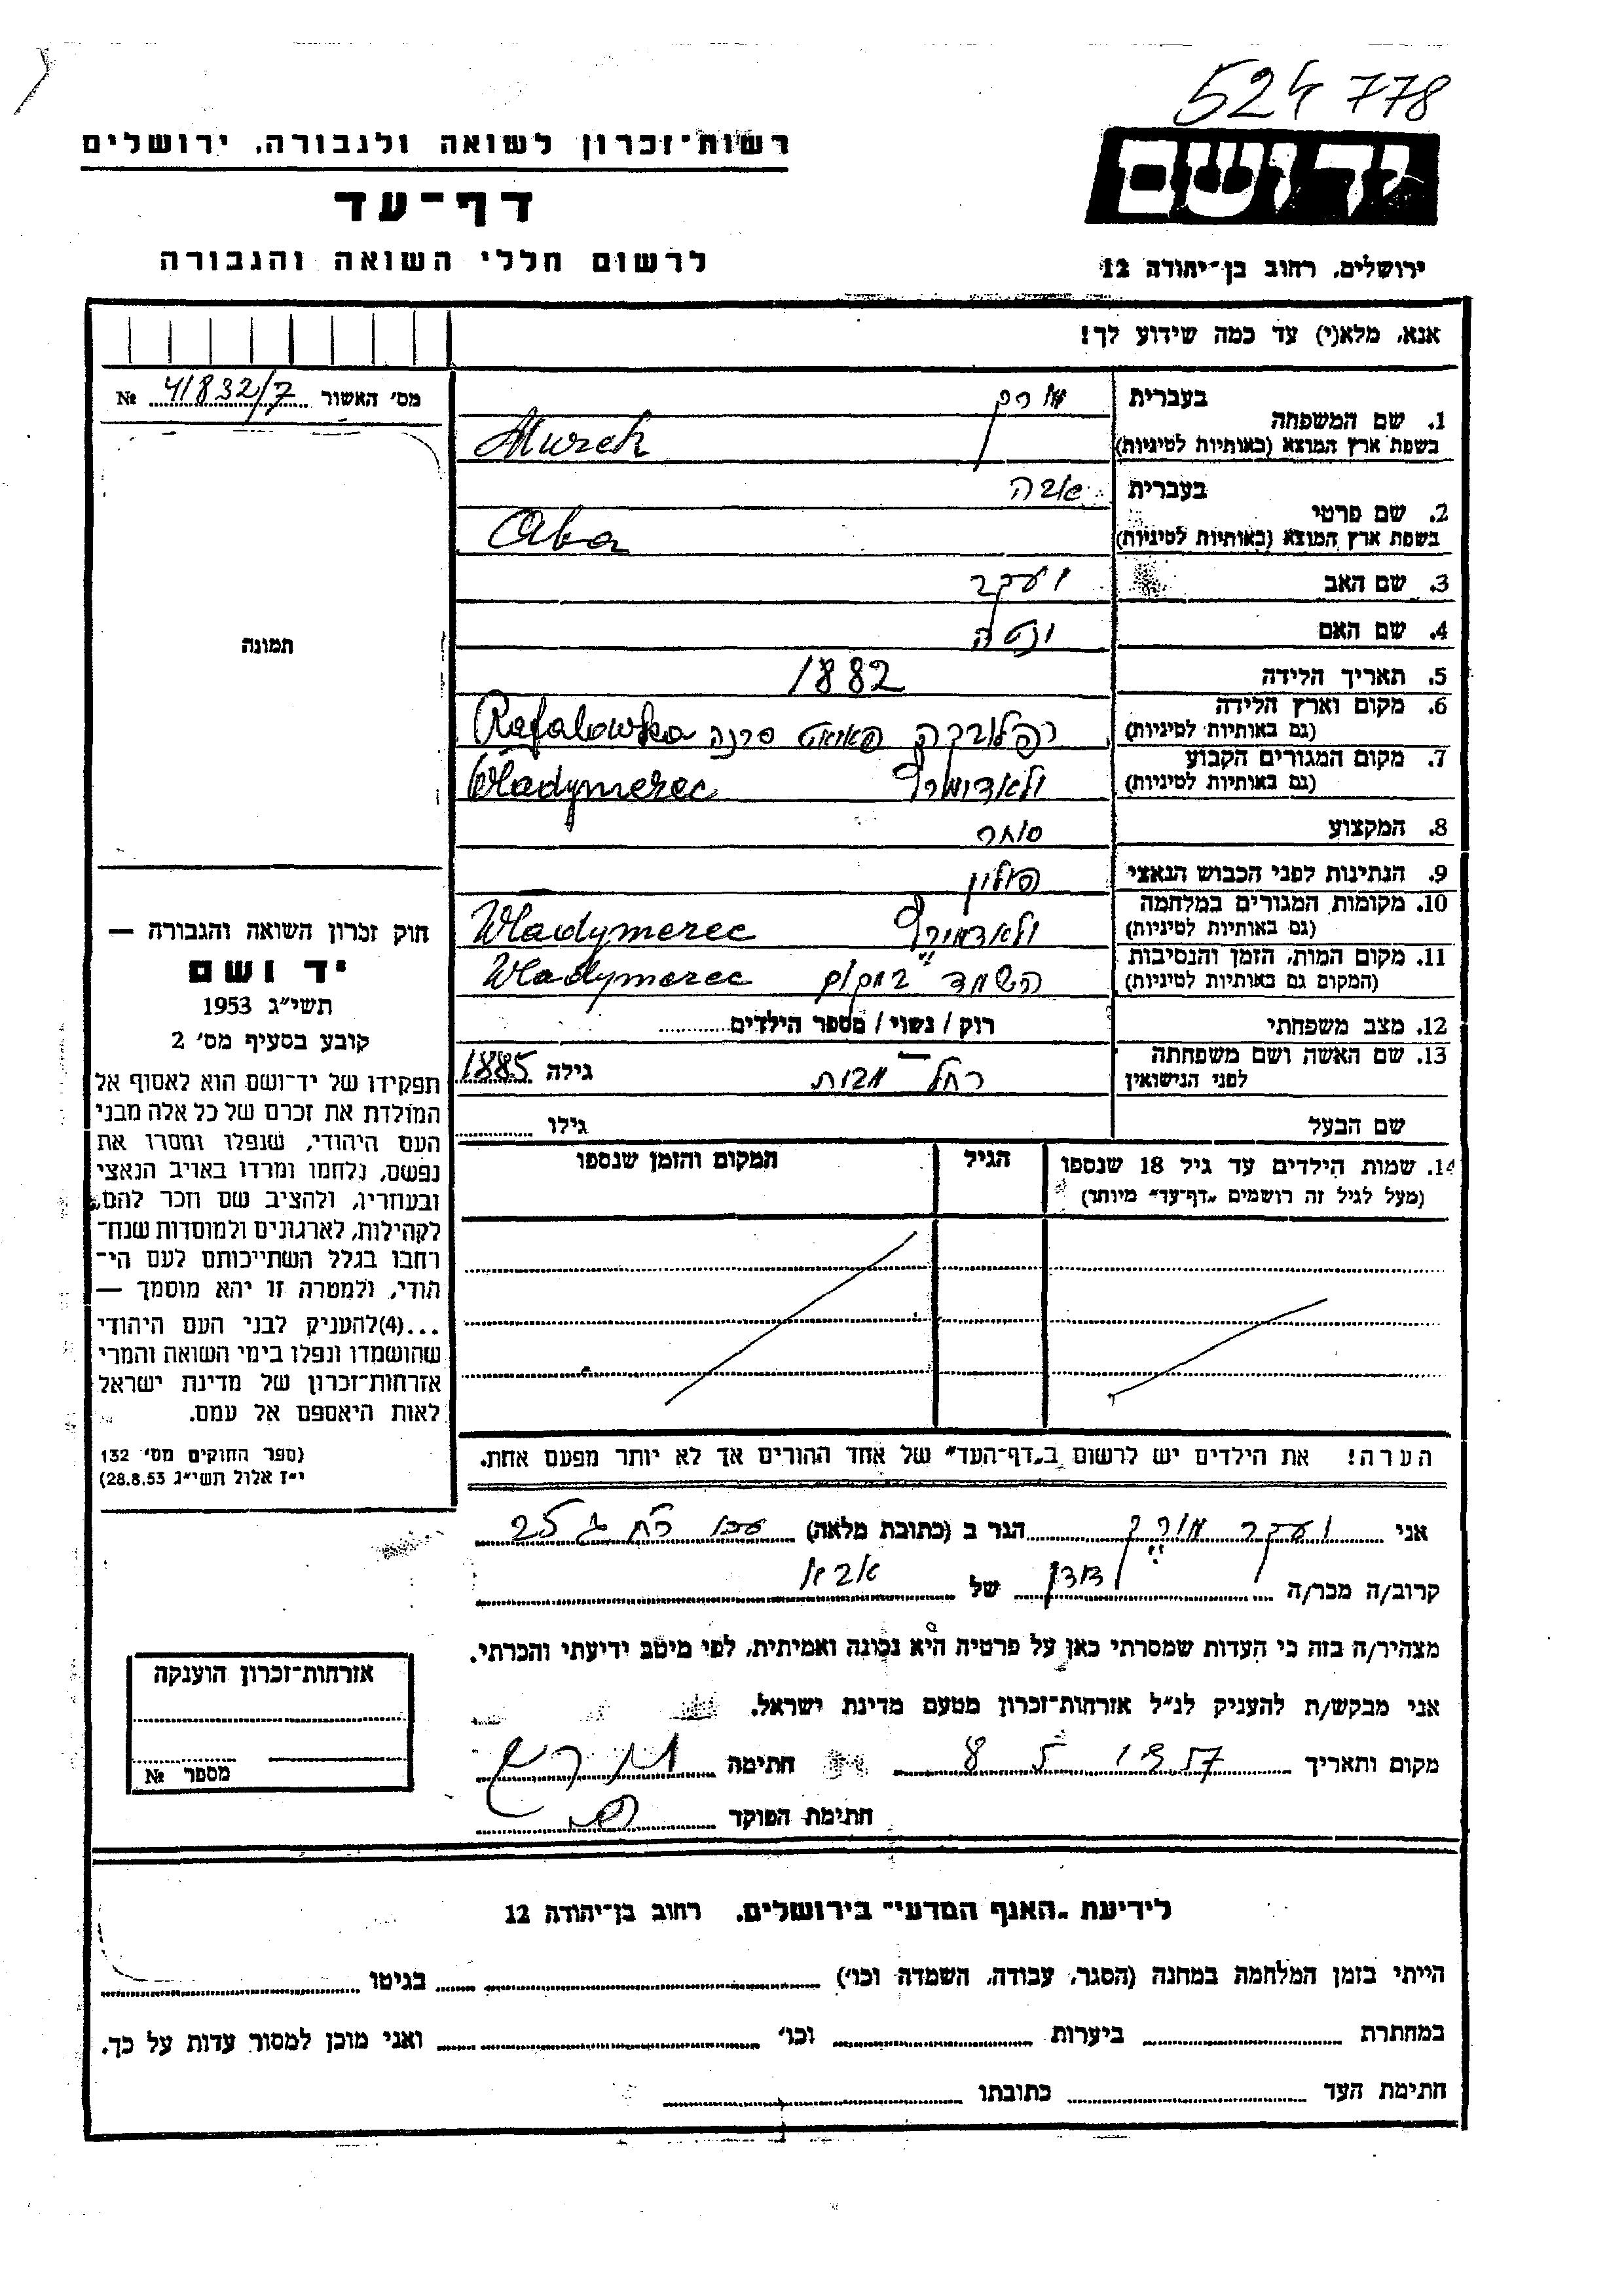 524 778
רשות־זכרון לשואה ולגבורה, ירושלים
יד ושם
דף־עד
לרשום חללי השואה והגבורה
ירושלים, רחוב בן־יהודה 12
אנא, מלא(י) עד כמה שידוע לך!
מס׳ האשור 41832/7 №
תמונה
1. שם המשפחה
בעברית
בשפת ארץ המוצא (באותיות לטיניות) Murek
2. שם פרטי
בעברית אבה
בשפת ארץ המוצא (באותיות לטיניות) Aba
3. שם האב יעקב
4. שם האם יטה
5. תאריך הלידה 1882
6. מקום וארץ הלידה (גם באותיות לטיניות) רפלובקה סרנה Rafalowka
7. מקום המגורים הקבוע (גם באותיות לטיניות) Wladymerec
8. המקצוע סוחר
9. הנתינות לפני הכבוש הנאצי פולין
10. מקומות המגורים במלחמה (גם באותיות לטיניות) Wladymerec
11. מקום המות, הזמן והנסיבות (המקום גם באותיות לטיניות) השמד במקום Wladymerec
12. מצב משפחתי רוק / נשוי / מספר הילדים
13. שם האשה ושם משפחתה לפני הנישואין רחל גילה 1885
שם הבעל גילו
14. שמות הילדים עד גיל 18 שנספו (מעל לגיל זה רושמים „דף־עד״ מיוחד)
הגיל
המקום והזמן שנספו
הערה! את הילדים יש לרשום ב„דף־העד״ של אחד ההורים אך לא יותר מפעם אחת.
חוק זכרון השואה והגבורה —
יד ושם
תשי״ג 1953
קובע בסעיף מס׳ 2
תפקידו של יד־ושם הוא לאסוף אל
המולדת את זכרם של כל אלה מבני
העם היהודי, שנפלו ומסרו את
נפשם, נלחמו ומרדו באויב הנאצי
ובעוזריו, ולהציב שם וזכר להם,
לקהילות, לארגונים ולמוסדות שנח־
רחבו בגלל השתייכותם לעם הי־
הודי, ולמטרה זו יהא מוסמך —
...(4)להעניק לבני העם היהודי
שהושמדו ונפלו בימי השואה והמרי
אזרחות־זכרון של מדינת ישראל
לאות היאספם אל עמם.
(ספר החוקים מס׳ 132
י״ז אלול תשי״ג 28.8.53)
אני יעקב מורק הגר ב (כתובת מלאה) עכו
קרוב/ה מכר/ה של אבא
מצהיר/ה בזה כי העדות שמסרתי כאן על פרטיה היא נכונה ואמיתית, לפי מיטב ידיעתי והכרתי.
אני מבקש/ת להעניק לנ״ל אזרחות־זכרון מטעם מדינת ישראל.
מקום ותאריך 8 5 1957 חתימה
חתימת הפוקד
אזרחות־זכרון הוענקה
מספר №
לידיעת „האגף המדעי״ בירושלים, רחוב בן־יהודה 12
הייתי בזמן המלחמה במחנה (הסגר, עבודה, השמדה וכו׳) בגיטו
במחתרת ביערות וכו׳ ואני מוכן למסור עדות על כך.
חתימת העד כתובתו